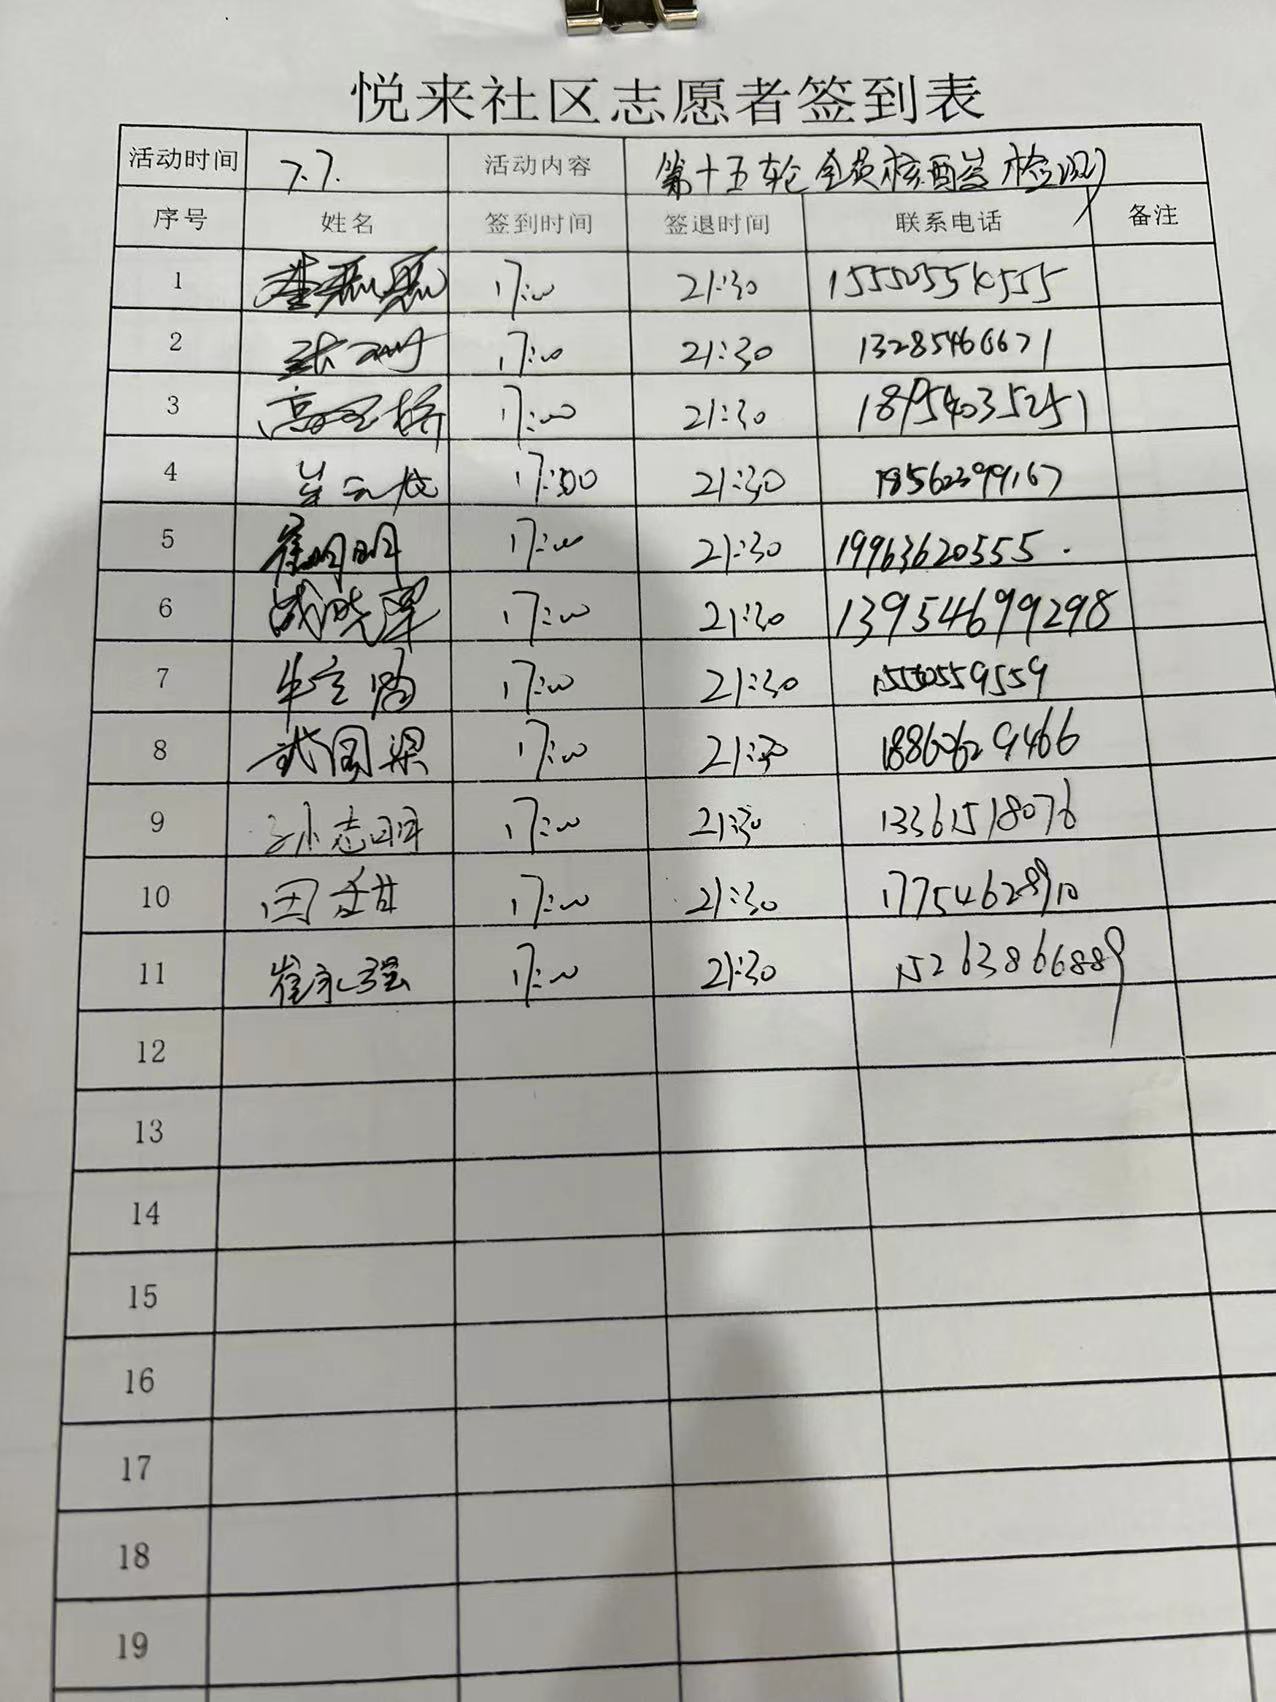 悦来社区志愿者签到表
活动时间 7.7. 活动内容 第十五轮全员核酸检测
序号 姓名 签到时间 签退时间 联系电话 备注
1 17:00 21:30
2 17:00 21:30 13285466671
3 17:00 21:30 18954035251
4 17:00 21:30 18562399167
5 崔明明 17:00 21:30 19963620555.
6 成晓军 17:00 21:30 13954699298
7 17:00 21:30 15550559559
8 武国梁 17:00 21:30 18860629466
9 孙志明 17:00 21:30 13361518076
10 田甜 17:00 21:30 17754628910
11 崔永强 17:00 21:30 15263866889
12
13
14
15
16
17
18
19